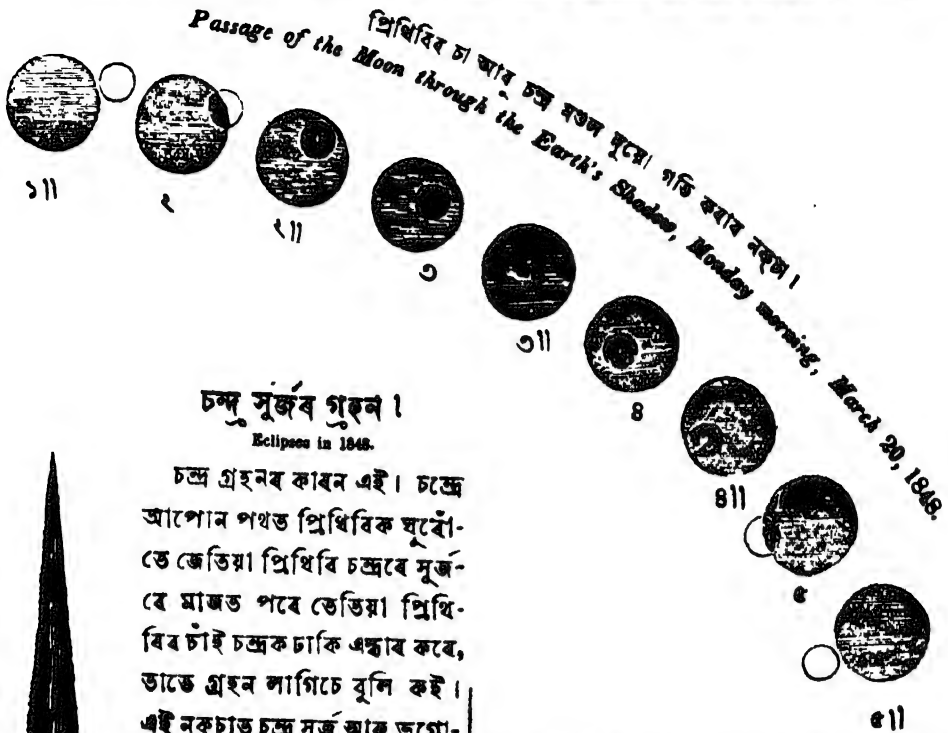 প্ৰিথিবিৰ চা আৰু চন্দ্ৰ মণ্ডল দুয়ো গতি কৰাৰ নক্চা।
Passage of the Moon through the Earth's Shadow, Monday morning, March 20, 1848.
১॥
২
২॥
৩
৩॥
৪
৪॥
৫
৫॥
চন্দ্ৰ সুৰ্জৰ গ্ৰহন।
Eclipses in 1848.
চন্দ্ৰ গ্ৰহনৰ কাৰন এই। চন্দ্ৰে
আপোন পথত প্ৰিথিবিক ঘুৰোঁ-
তে জেতিয়া প্ৰিথিবি চন্দ্ৰৰে সুৰ্জ-
ৰে মাজত পৰে তেতিয়া প্ৰিথি-
বিৰ চাঁই চন্দ্ৰক ঢাকি এন্ধাৰ কৰে,
তাতে গ্ৰহন লাগিচে বুলি কই।
এই নকচাত চন্দ্ৰ সুৰ্জ আৰু ভূগো-